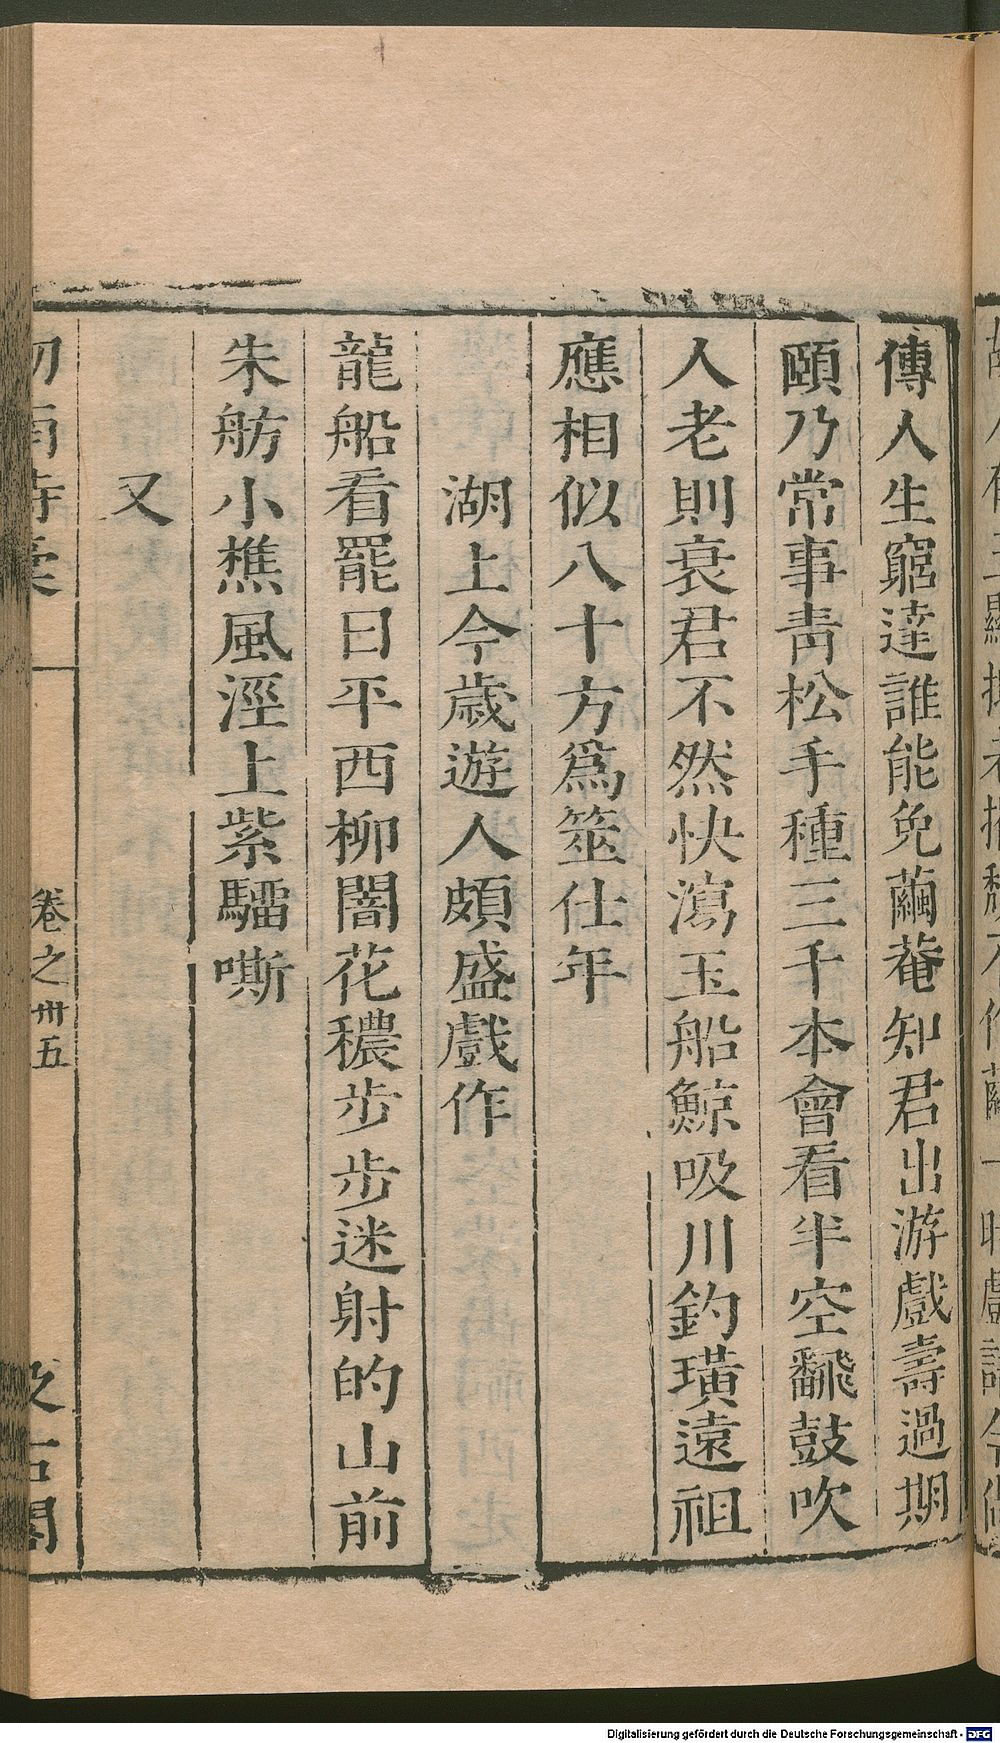 傳人生窮達誰能免繭菴知君出游戲壽過期
頤乃常事靑松手種三千本會看半空飜鼓吹
人老則衰君不然快瀉玉船鯨吸川釣璜遠祖
應相似八十方爲筮仕年
湖上今歲遊人頗盛戲作
龍船看罷日平西柳闇花穠步步迷射的山前
朱舫小樵風涇上紫騮嘶
又
卷之卅五
Digitalisierung gefördert durch die Deutsche Forschungsgemeinschaft - DFG